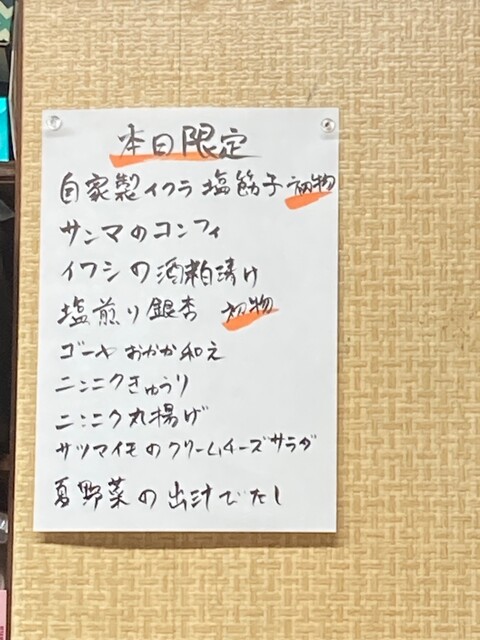 本日限定
自家製イクラ 塩筋子 初物
サンマのコンフィ
イワシの酒粕漬け
塩煎り銀杏 初物
ゴーヤおかか和え
ニンニクきゅうり
ニンニク丸揚げ
サツマイモのクリームチーズサラダ
夏野菜の出汁びたし